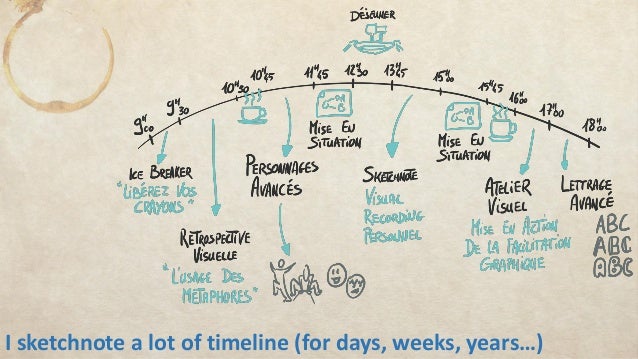 DÉJEUNER
9H00
9H30
10H30
10H45
11H45
12H30
13H45
15H00
15H45
16H00
17H00
18H00
ICE BREAKER
"LIBÉREZ VOS
CRAYONS"
RÉTROSPECTIVE
VISUELLE
"L'USAGE DES
MÉTAPHORES"
PERSONNAGES
AVANCÉS
MISE EN
SITUATION
SKETCHNOTE
VISUAL
RECORDING
PERSONNEL
MISE EN
SITUATION
ATELIER
VISUEL
MISE EN ACTION
DE LA FACILITATION
GRAPHIQUE
LETTRAGE
AVANCÉ
ABC
ABC
ABC
I sketchnote a lot of timeline (for days, weeks, years…)